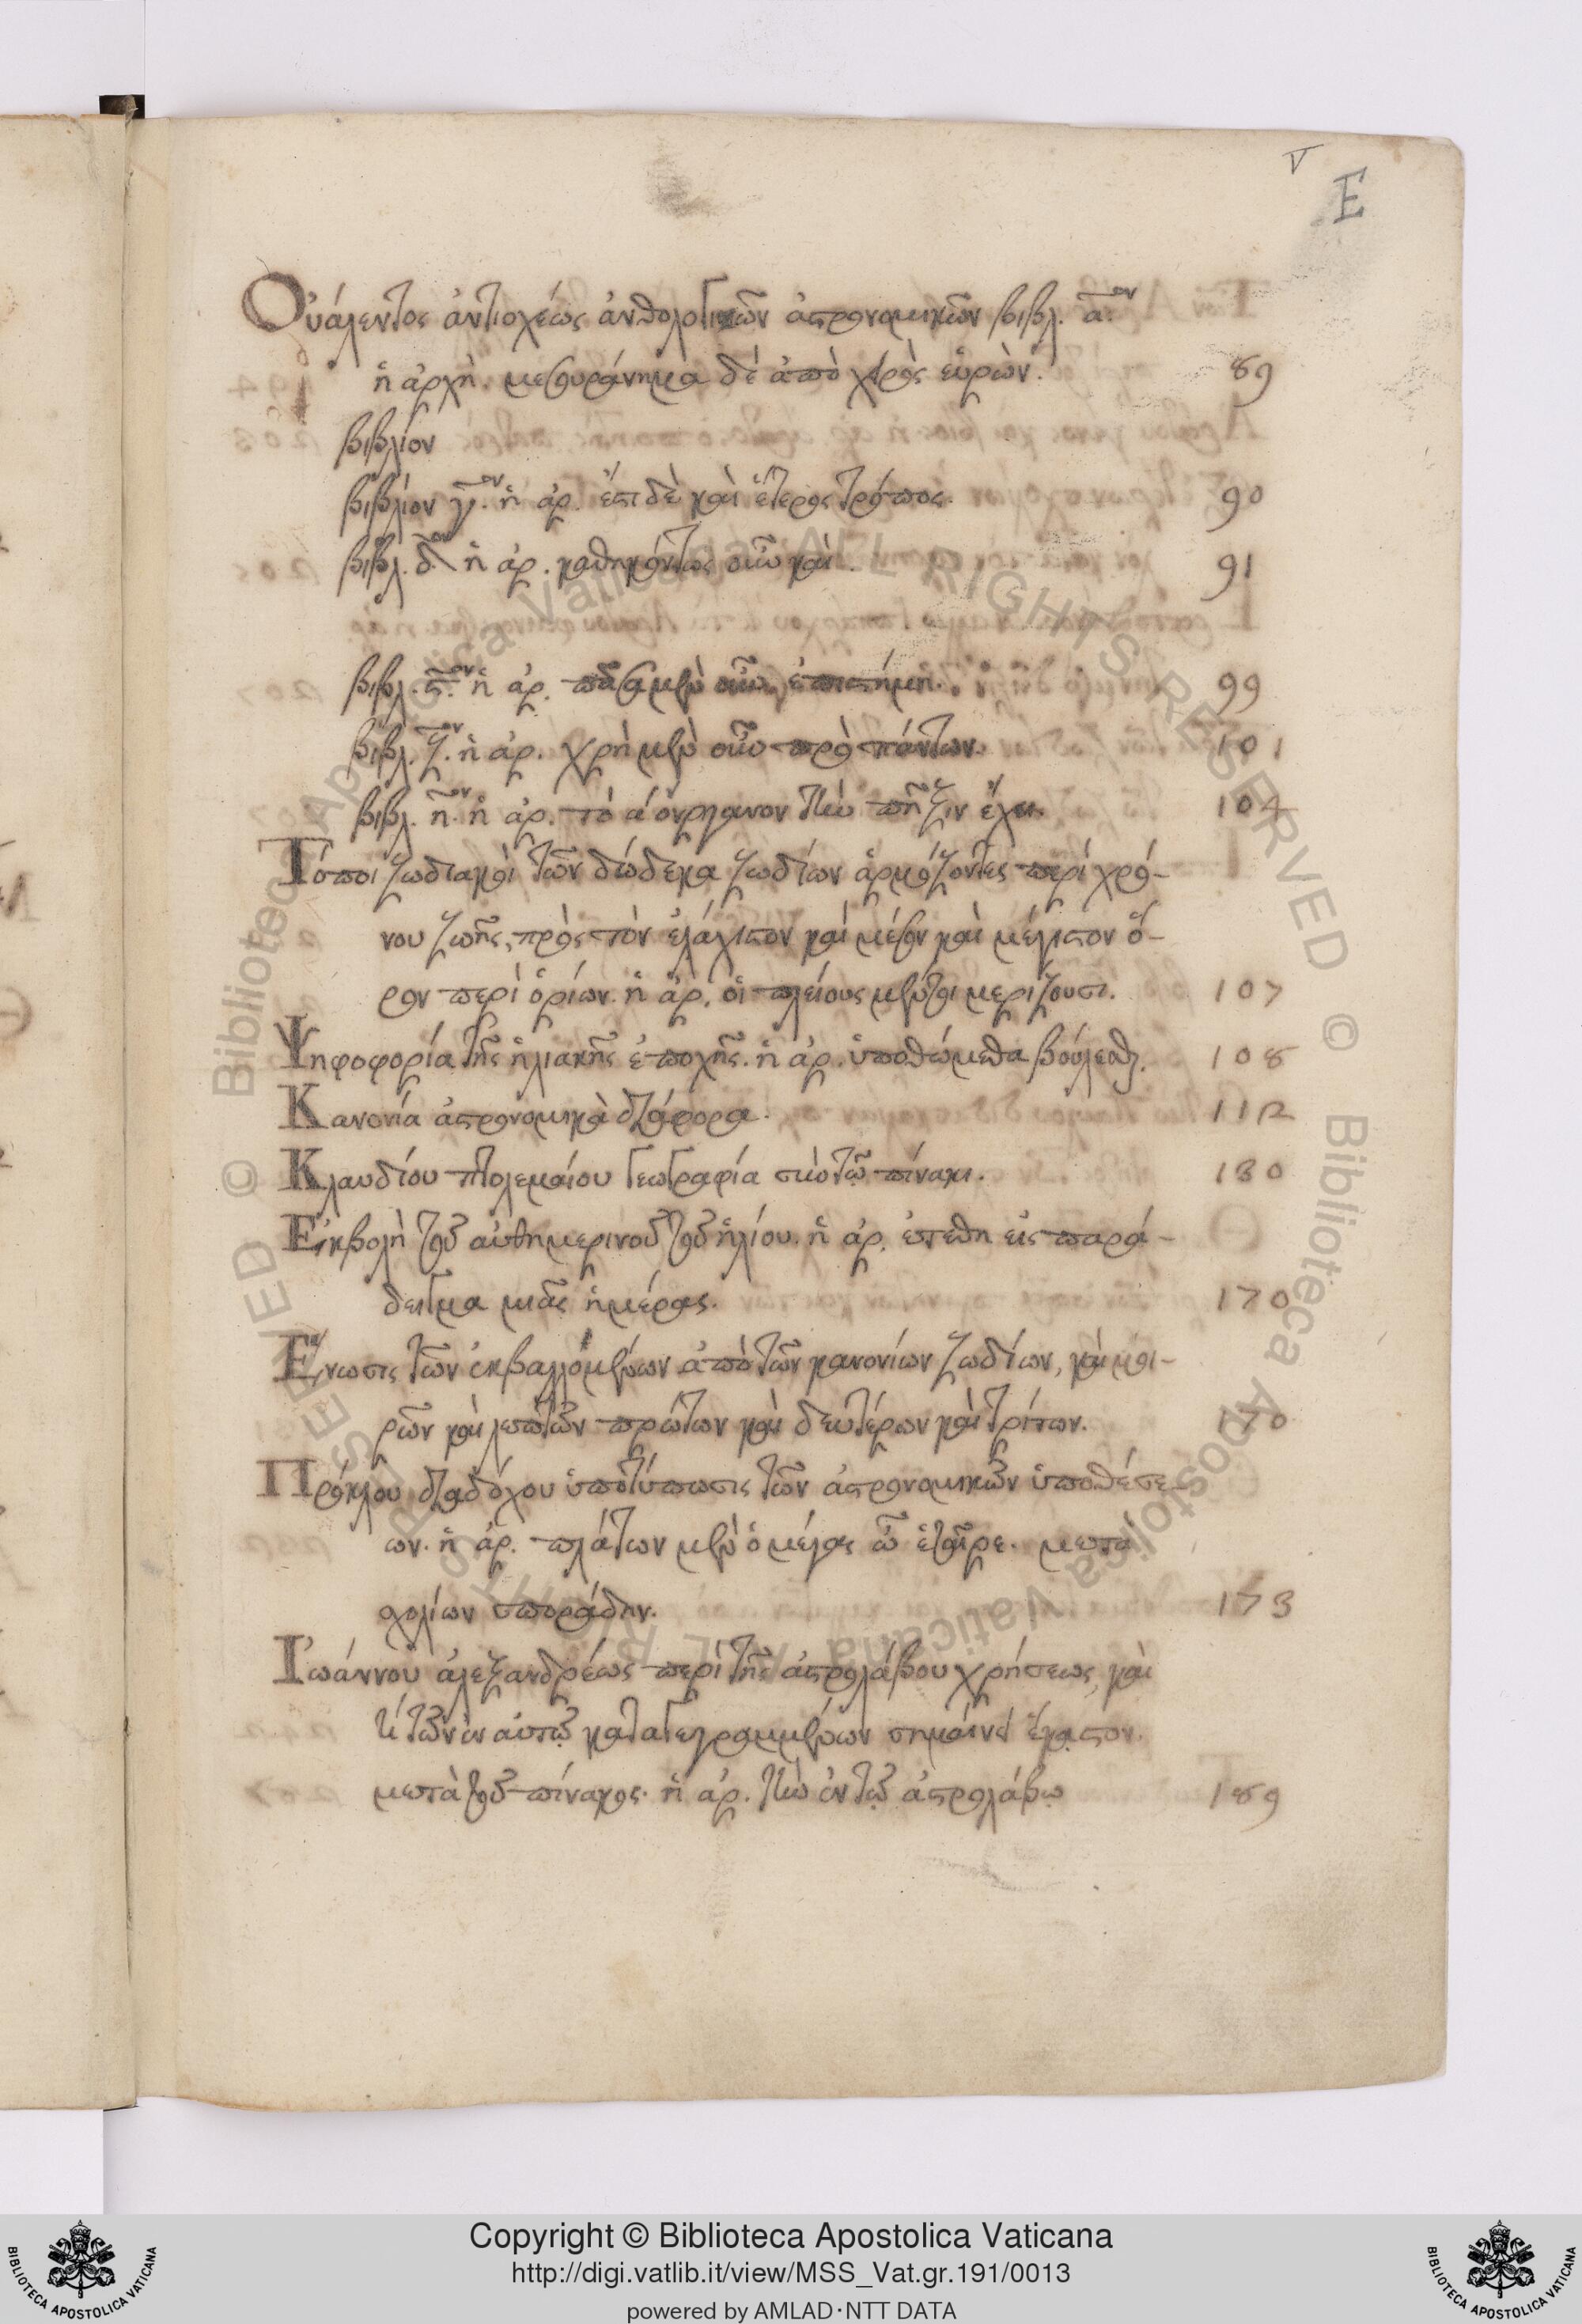 V
E
Οὐάλεντος ἀντιοχέως ἀνθολογικῶν ἀστρονομικῶν βιβλ. α^ον.
ἡ ἀρχὴ. μεσουράνημα δὲ ἀπὸ χειρὸς εὑρὼν. 89
βιβλίον
βιβλίον γ^ον. ἡ ἀρ. ἔστι δὲ καὶ ἕτερος τρόπος. 90
βιβλ. δ^ον ἡ ἀρ. καθηκόντως οὖν καὶ. 91
βιβλ. ς^ον. ἡ ἀρ. πᾶσα μὲν οὖν ἐπιστήμη. 99
βιβλ. ζ^ον. ἡ ἀρ. χρὴ μὲν οὖν πρὸ πάντων. 101
βιβλ. η^ον. ἡ ἀρ. τὸ α ὄργανον τὴν πῆξιν ἔχει. 104
Τόποι ζωδιακοὶ τῶν δώδεκα ζωδίων ἁρμόζοντες περὶ χρό-
νου ζωῆς, πρὸς τὸν ἐλάχιστον καὶ μέσον καὶ μέγιστον ὅ-
ρον περὶ ὁρίων. ἡ ἀρ. οἱ πλείους μὲν μερίζουσι. 107
Ψηφοφορία τῆς ἡλιακῆς ἐποχῆς. ἡ ἀρ. ὑποθώμεθα βούλεσθαι. 108
Κανονία ἀστρονομικὰ διάφορα. 112
Κλαυδίου πτολεμαίου γεωγραφία σὺν τῷ πίνακι. 130
Ἐκβολὴ τοῦ αὐθημερινοῦ τοῦ ἡλίου. ἡ ἀρ. ἐτέθη εἰς παρά-
δειγμα μιᾶς ἡμέρας. 170
Ἕνωσις τῶν ἐκβαλλομένων ἀπὸ τῶν κανονίων ζωδίων, καὶ μοι-
ρῶν καὶ λεπτῶν πρώτων καὶ δευτέρων καὶ τρίτων. 170
Πρόκλου διαδόχου ὑποτύπωσις τῶν ἀστρονομικῶν ὑποθέσε-
ων. ἡ ἀρ. πλάτων μὲν ὁ μέγας ὦ ἑταῖρε. μετὰ
σχολίων σποράδην. 173
Ἰωάννου ἀλεξανδρέως περὶ τῆς ἀστρολάβου χρήσεως, καὶ
τί τῶν ἐν αὐτῷ καταγεγραμμένων σημαίνει ἕκαστον.
μετὰ τοῦ πίνακος. ἡ ἀρ. τὴν ἐν τῷ ἀστρολάβῳ 189
Copyright © Biblioteca Apostolica Vaticana
http://digi.vatlib.it/view/MSS_Vat.gr.191/0013
powered by AMLAD·NTT DATA
BIBLIOTECA APOSTOLICA VATICANA
BIBLIOTECA APOSTOLICA VATICANA
© Biblioteca Apostolica Vaticana ALL RIGHTS RESERVED © Biblioteca Apostolica Vaticana ALL RIGHTS RESERVED